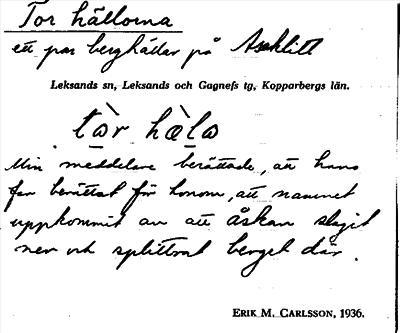 Tor hällorna
ett par berghällar på Asaklitt
Leksands sn, Leksands och Gagnefs tg, Kopparbergs län.
tòr hæ̀lɷ
Min meddelare berättade, att hans
far berättat för honom, att namnet
uppkommit av att åskan slagit
ner och splittrat berget där.
ERIK M. CARLSSON, 1936.